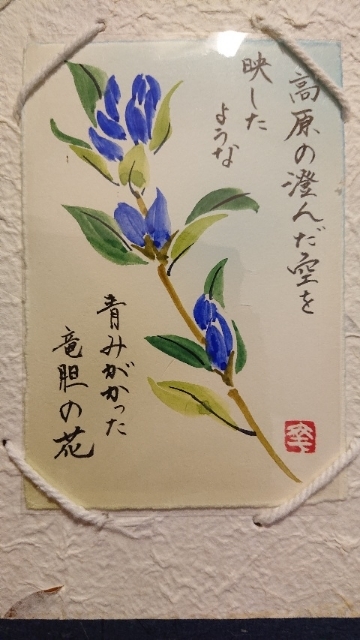 高原の澄んだ空を
映した
ような
青みがかった
竜胆の花